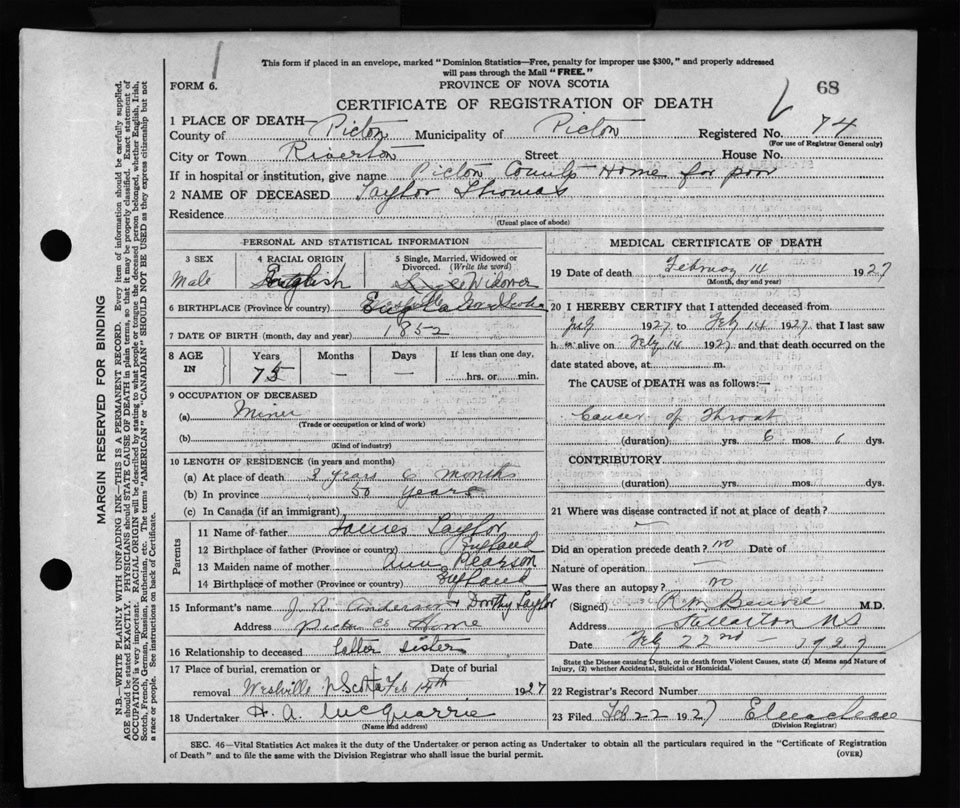 This form if placed in an envelope, marked "Dominion Statistics—Free, penalty for improper use $300," and properly addressed
will pass through the Mail "FREE."
FORM 6.
PROVINCE OF NOVA SCOTIA
68
CERTIFICATE OF REGISTRATION OF DEATH
1 PLACE OF DEATH—
County of Picton Municipality of Picton Registered No. 74
(For use of Registrar General only)
City or Town Riverton Street House No.
If in hospital or institution, give name Picton County Home for poor
2 NAME OF DECEASED Taylor Thomas
Residence
(Usual place of abode)
PERSONAL AND STATISTICAL INFORMATION
3 SEX 4 RACIAL ORIGIN 5 Single, Married, Widowed or Divorced. (Write the word)
Male English Widower
6 BIRTHPLACE (Province or country) England
7 DATE OF BIRTH (month, day and year) 1852
8 AGE IN Years Months Days If less than one day,
75 — — hrs. or min.
9 OCCUPATION OF DECEASED
(a) Miner
(Trade or occupation or kind of work)
(b)
(Kind of industry)
10 LENGTH OF RESIDENCE (in years and months)
(a) At place of death 3 years 6 months
(b) In province 50 years
(c) In Canada (if an immigrant)
Parents
11 Name of father James Taylor
12 Birthplace of father (Province or country) England
13 Maiden name of mother Ann Pearson
14 Birthplace of mother (Province or country) England
15 Informant's name J. R. Anderson + Dorthy Taylor
Address Pictou Co Home
16 Relationship to deceased latter sister
17 Place of burial, cremation or Date of burial
removal Westville N Scotia Feb 14th 1927
18 Undertaker H. A. McQuarrie
(Name and address)
MEDICAL CERTIFICATE OF DEATH
19 Date of death February 14 1927
(Month, day and year)
20 I HEREBY CERTIFY that I attended deceased from
1927 to Feb 14 1927, that I last saw
h alive on Feby 14 1927 and that death occurred on the
date stated above, at m.
The CAUSE of DEATH was as follows:—
Cancer of Throat
(duration) yrs. 6 mos. 6 dys.
CONTRIBUTORY
(duration) yrs. mos. dys.
21 Where was disease contracted if not at place of death?
Did an operation precede death? no Date of
Nature of operation
Was there an autopsy? no
(Signed) M.D.
Address Stellarton NS
Date Feb 22nd — 1927
State the Disease causing Death, or in death from Violent Causes, state (1) Means and Nature of
Injury, (2) whether Accidental, Suicidal or Homicidal.
22 Registrar's Record Number
23 Filed Feb 22 1927
(Division Registrar)
SEC. 46—Vital Statistics Act makes it the duty of the Undertaker or person acting as Undertaker to obtain all the particulars required in the "Certificate of Registration
of Death" and to file the same with the Division Registrar who shall issue the burial permit.
(OVER)
MARGIN RESERVED FOR BINDING
N.B.—WRITE PLAINLY WITH UNFADING INK—THIS IS A PERMANENT RECORD. Every item of information should be carefully supplied.
AGE should be stated EXACTLY. PHYSICIANS should STATE CAUSE OF DEATH in plain terms, so that it may be properly classified. Exact statement of
OCCUPATION is very important. RACIAL ORIGIN will be described by stating to what people or tongue the deceased person belonged, whether English, Irish,
Scotch, French, German, Russian, Ruthenian, etc. The terms "AMERICAN" or "CANADIAN" SHOULD NOT BE USED as they express citizenship but not
a race or people. See instructions on back of Certificate.